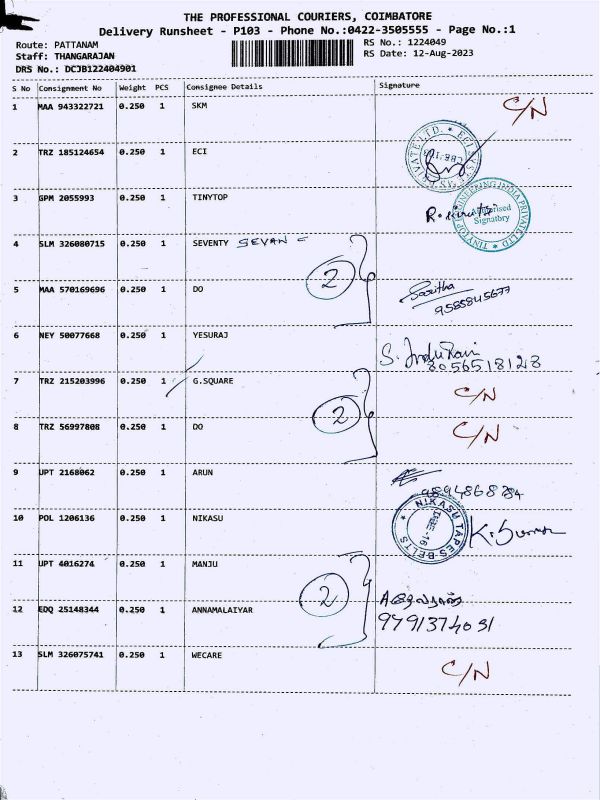 THE PROFESSIONAL COURIERS, COIMBATORE
Delivery Runsheet - P103 - Phone No.:0422-3505555 - Page No.:1
Route: PATTANAM
RS No.: 1224049
Staff: THANGARAJAN
RS Date: 12-Aug-2023
DRS No.: DCJB122404901
S No Consignment No Weight PCS Consignee Details Signature
1 MAA 943322721 0.250 1 SKM C/N
2 TRZ 185124654 0.250 1 ECI
3 GPM 2055993 0.250 1 TINYTOP
TINYTOP ENGINEERING INDIA PRIVATE LTD
Authorised
Signatory
4 SLM 326080715 0.250 1 SEVENTY SEVAN =
2
5 MAA 570169696 0.250 1 DO Saritha
9585845677
6 NEY 50077668 0.250 1 YESURAJ
8056518128
7 TRZ 215203996 0.250 1 G.SQUARE C/N
2
8 TRZ 56997808 0.250 1 DO C/N
9 UPT 2168062 0.250 1 ARUN
9894868784
10 POL 1206136 0.250 1 NIKASU
NIKASU TAPES-BELTS
11 UPT 4016274 0.250 1 MANJU
2
12 EDQ 25148344 0.250 1 ANNAMALAIYAR
9791374031
13 SLM 326075741 0.250 1 WECARE C/N